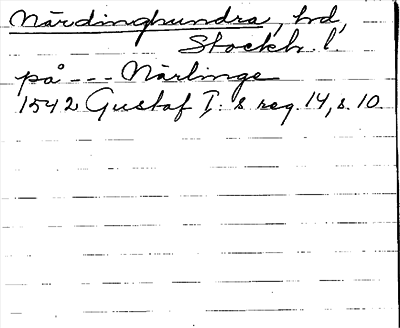 Närdinghundra, hd,
Stockh. l.
på --- Närlinge
1542 Gustaf I: s reg. 14, s. 10.